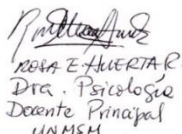 ROSA E. HUERTA R.
Dra. Psicología
Docente Principal
UNMSM